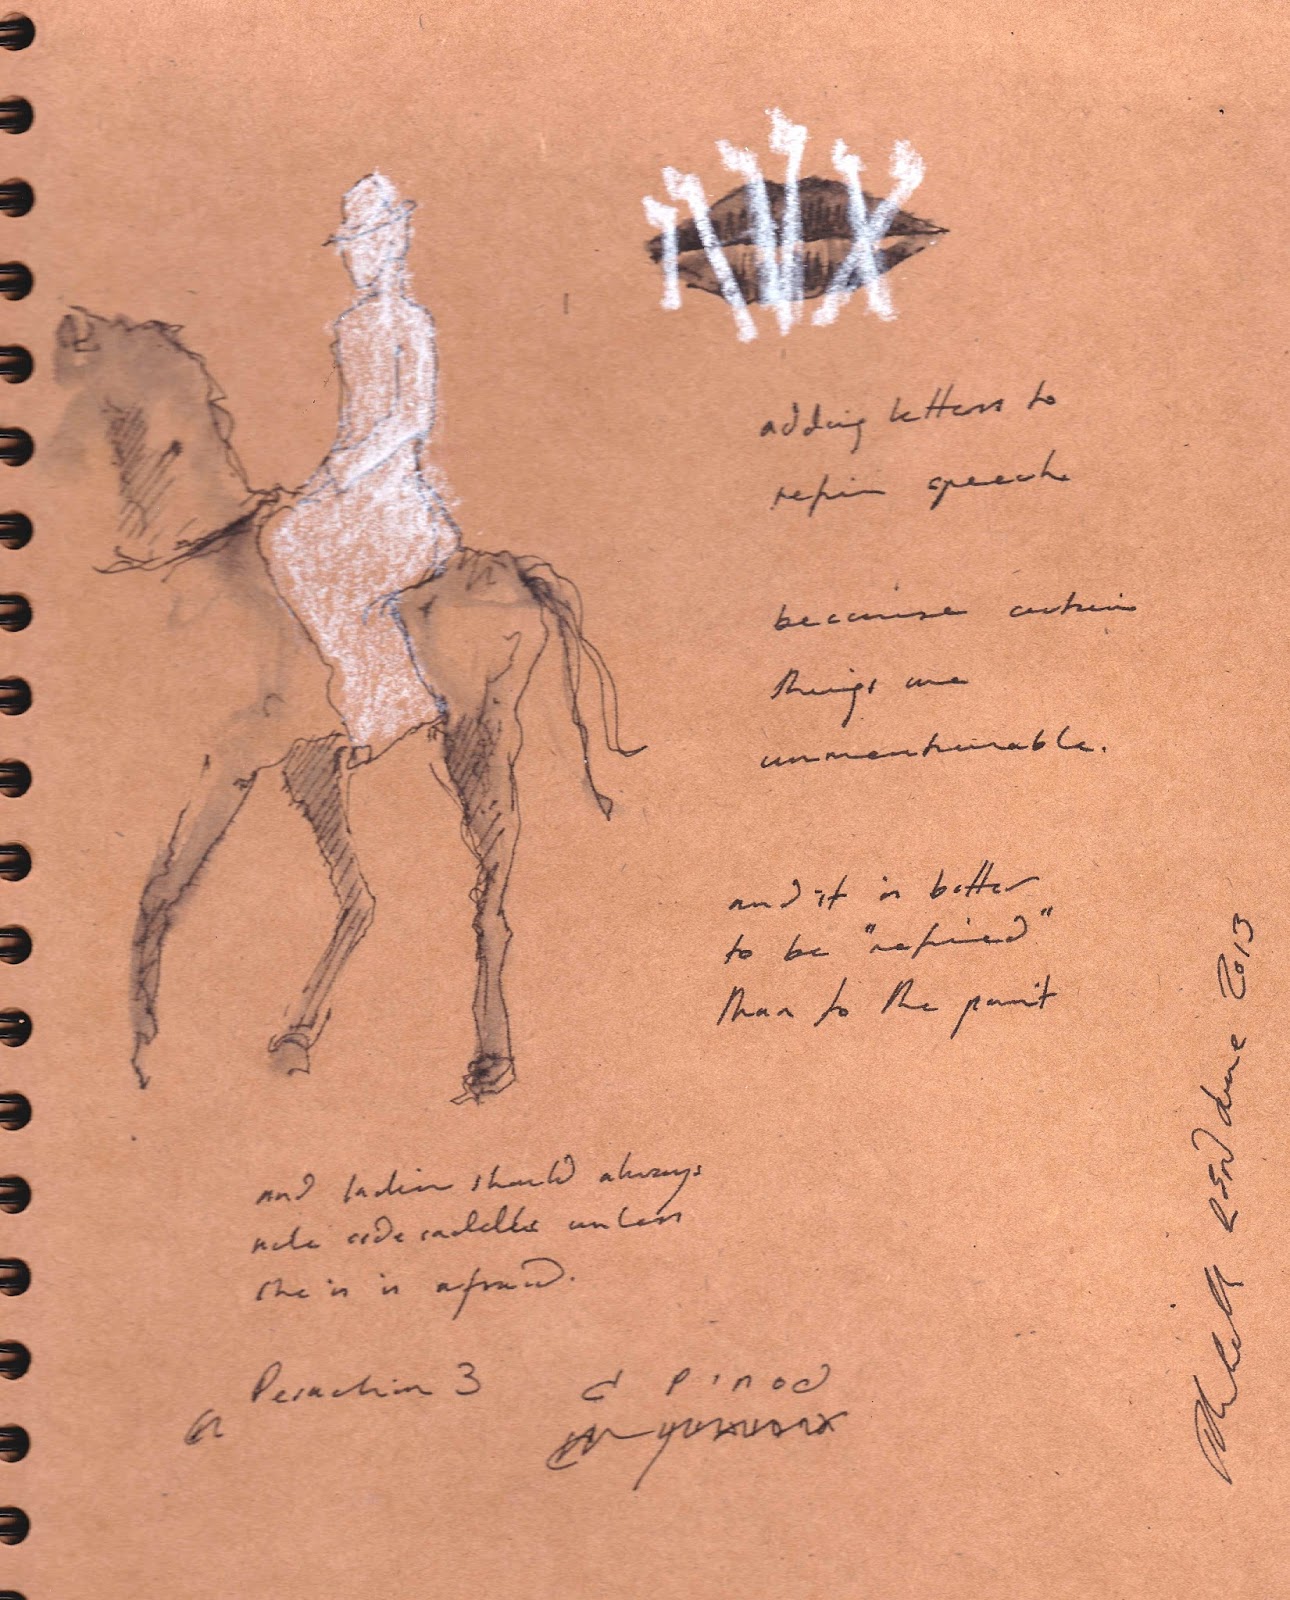 adding letters to
repair speech
because certain
things are
unmentionable.
and it is better
to be "refined"
than to the point
and ladies should always
ride side saddle unless
she is is afraid.
3
2013